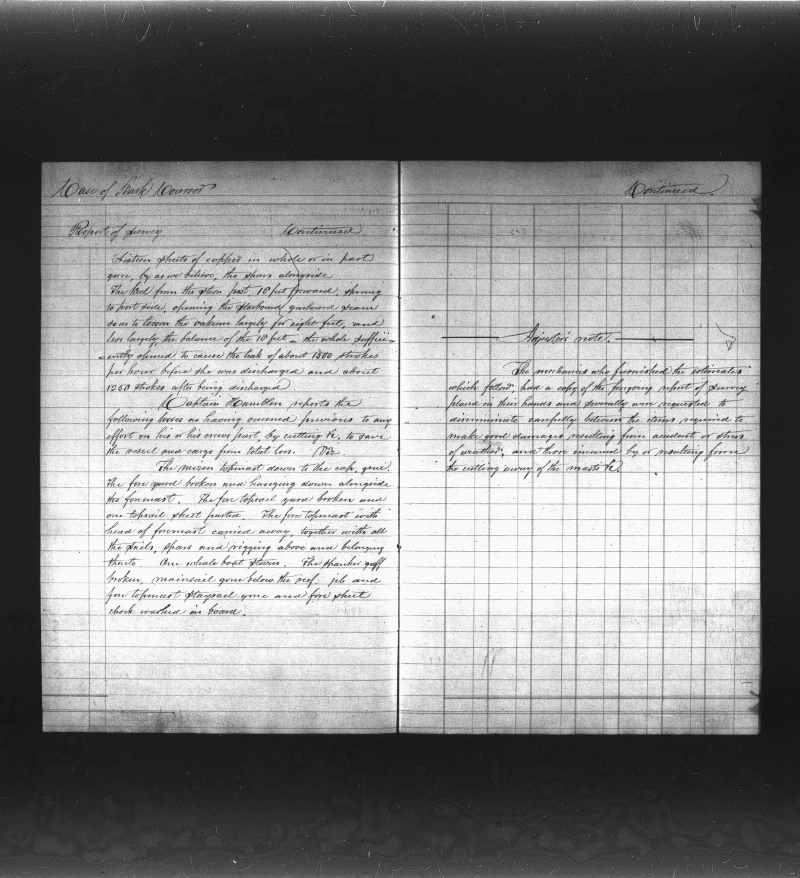 Case of Bark
Continued.
Report of Survey Continued.
Sixteen sheets of copper in whole or in part
gone, by as we believe, the spars alongside.
The keel from the stern post, 10 feet forward, sprung
to port side, opening the Starboard garboard seam
so as to loosen the oakum largely for eight feet, and
less largely the balance of the 10 feet – the whole suffici-
ently opened to cause the leak of about 1300 strokes
per hour before she was discharged and about
1250 strokes after being discharged.
Captain Hamblen reports the
following losses as having occurred previous to any
effort on his or his crews part, by cutting &c. to save
the vessel and cargo from total loss. Viz
The mizen topmast down to the cap, gone.
The fore yard broken and hanging down alongside
the foremast. The fore topsail yard broken and
one topsail sheet parted. The fore topmast with
head of foremast carried away, together with all
the sails, spars and rigging above and belonging
thereto. One whale boat stoven. The spanker gaff
broken, mainsail gone below the reef. jib and
fore topmast staysail gone and fore sheet
chock washed in board.
Adjuster's note.
The mechanics who furnished the estimates
which follow, had a copy of the forgoing report of survey
placed in their hands and severally were requested to
discriminate carefully between the items required to
make good damages resulting from accident or stress
of weather, and those incurred by or resulting from
the cutting away of the masts &c.